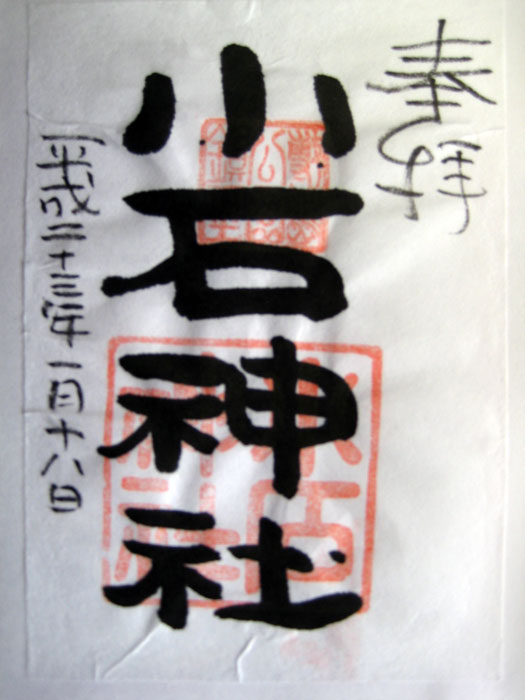 奉拝
小石神社
平成二十三年一月十八日